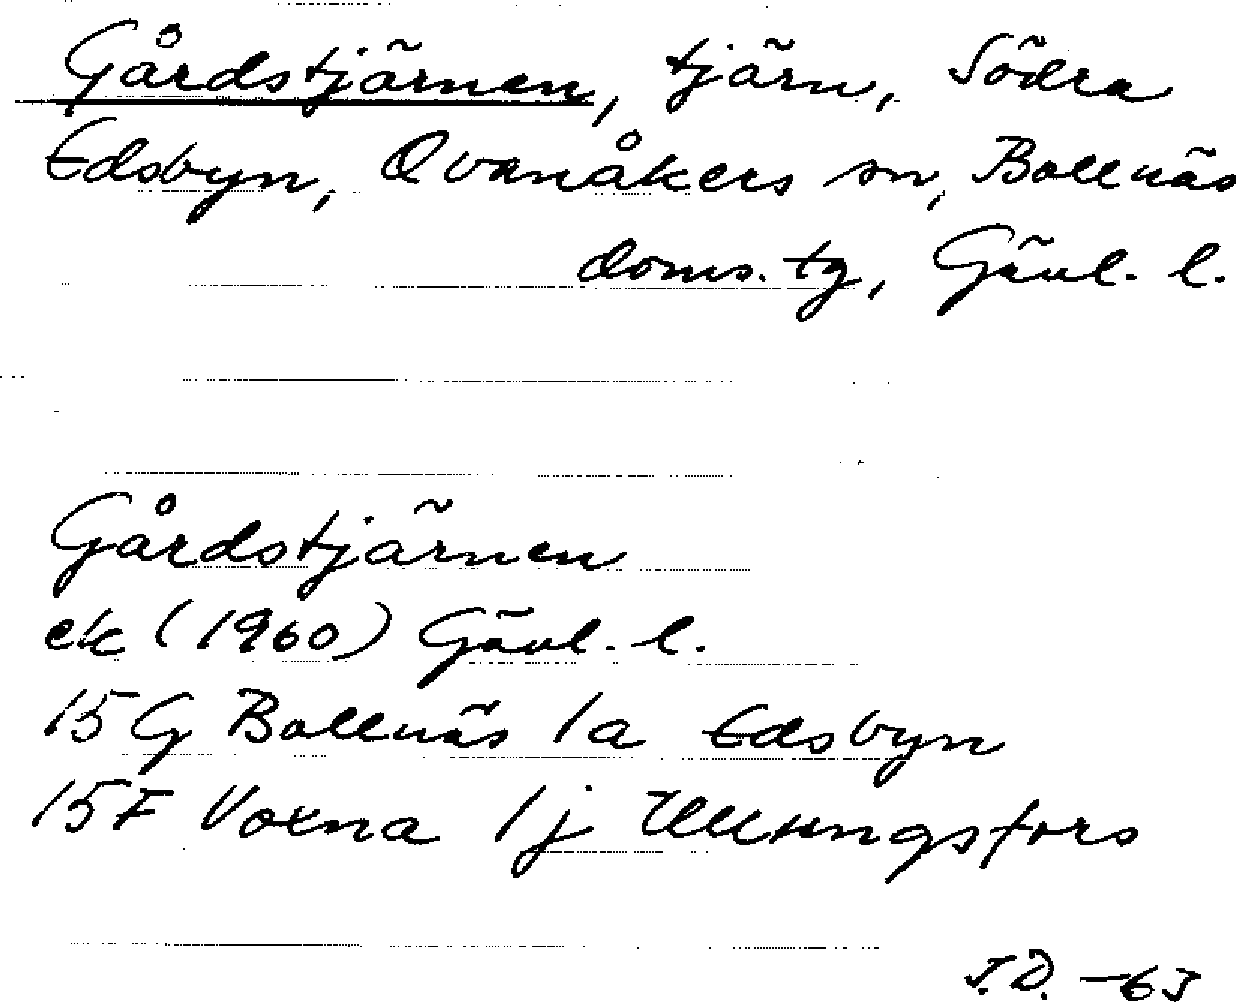 Gårdstjärnen, tjärn, Södra
Edsbyn, Ovanåkers sn, Bollnäs
doms. tg, Gävl. l.
Gårdstjärnen
ek (1960) Gävl. l.
15G Bollnäs 1a Edsbyn
15F Voxna 1j Ullungsfors
J.D. -63